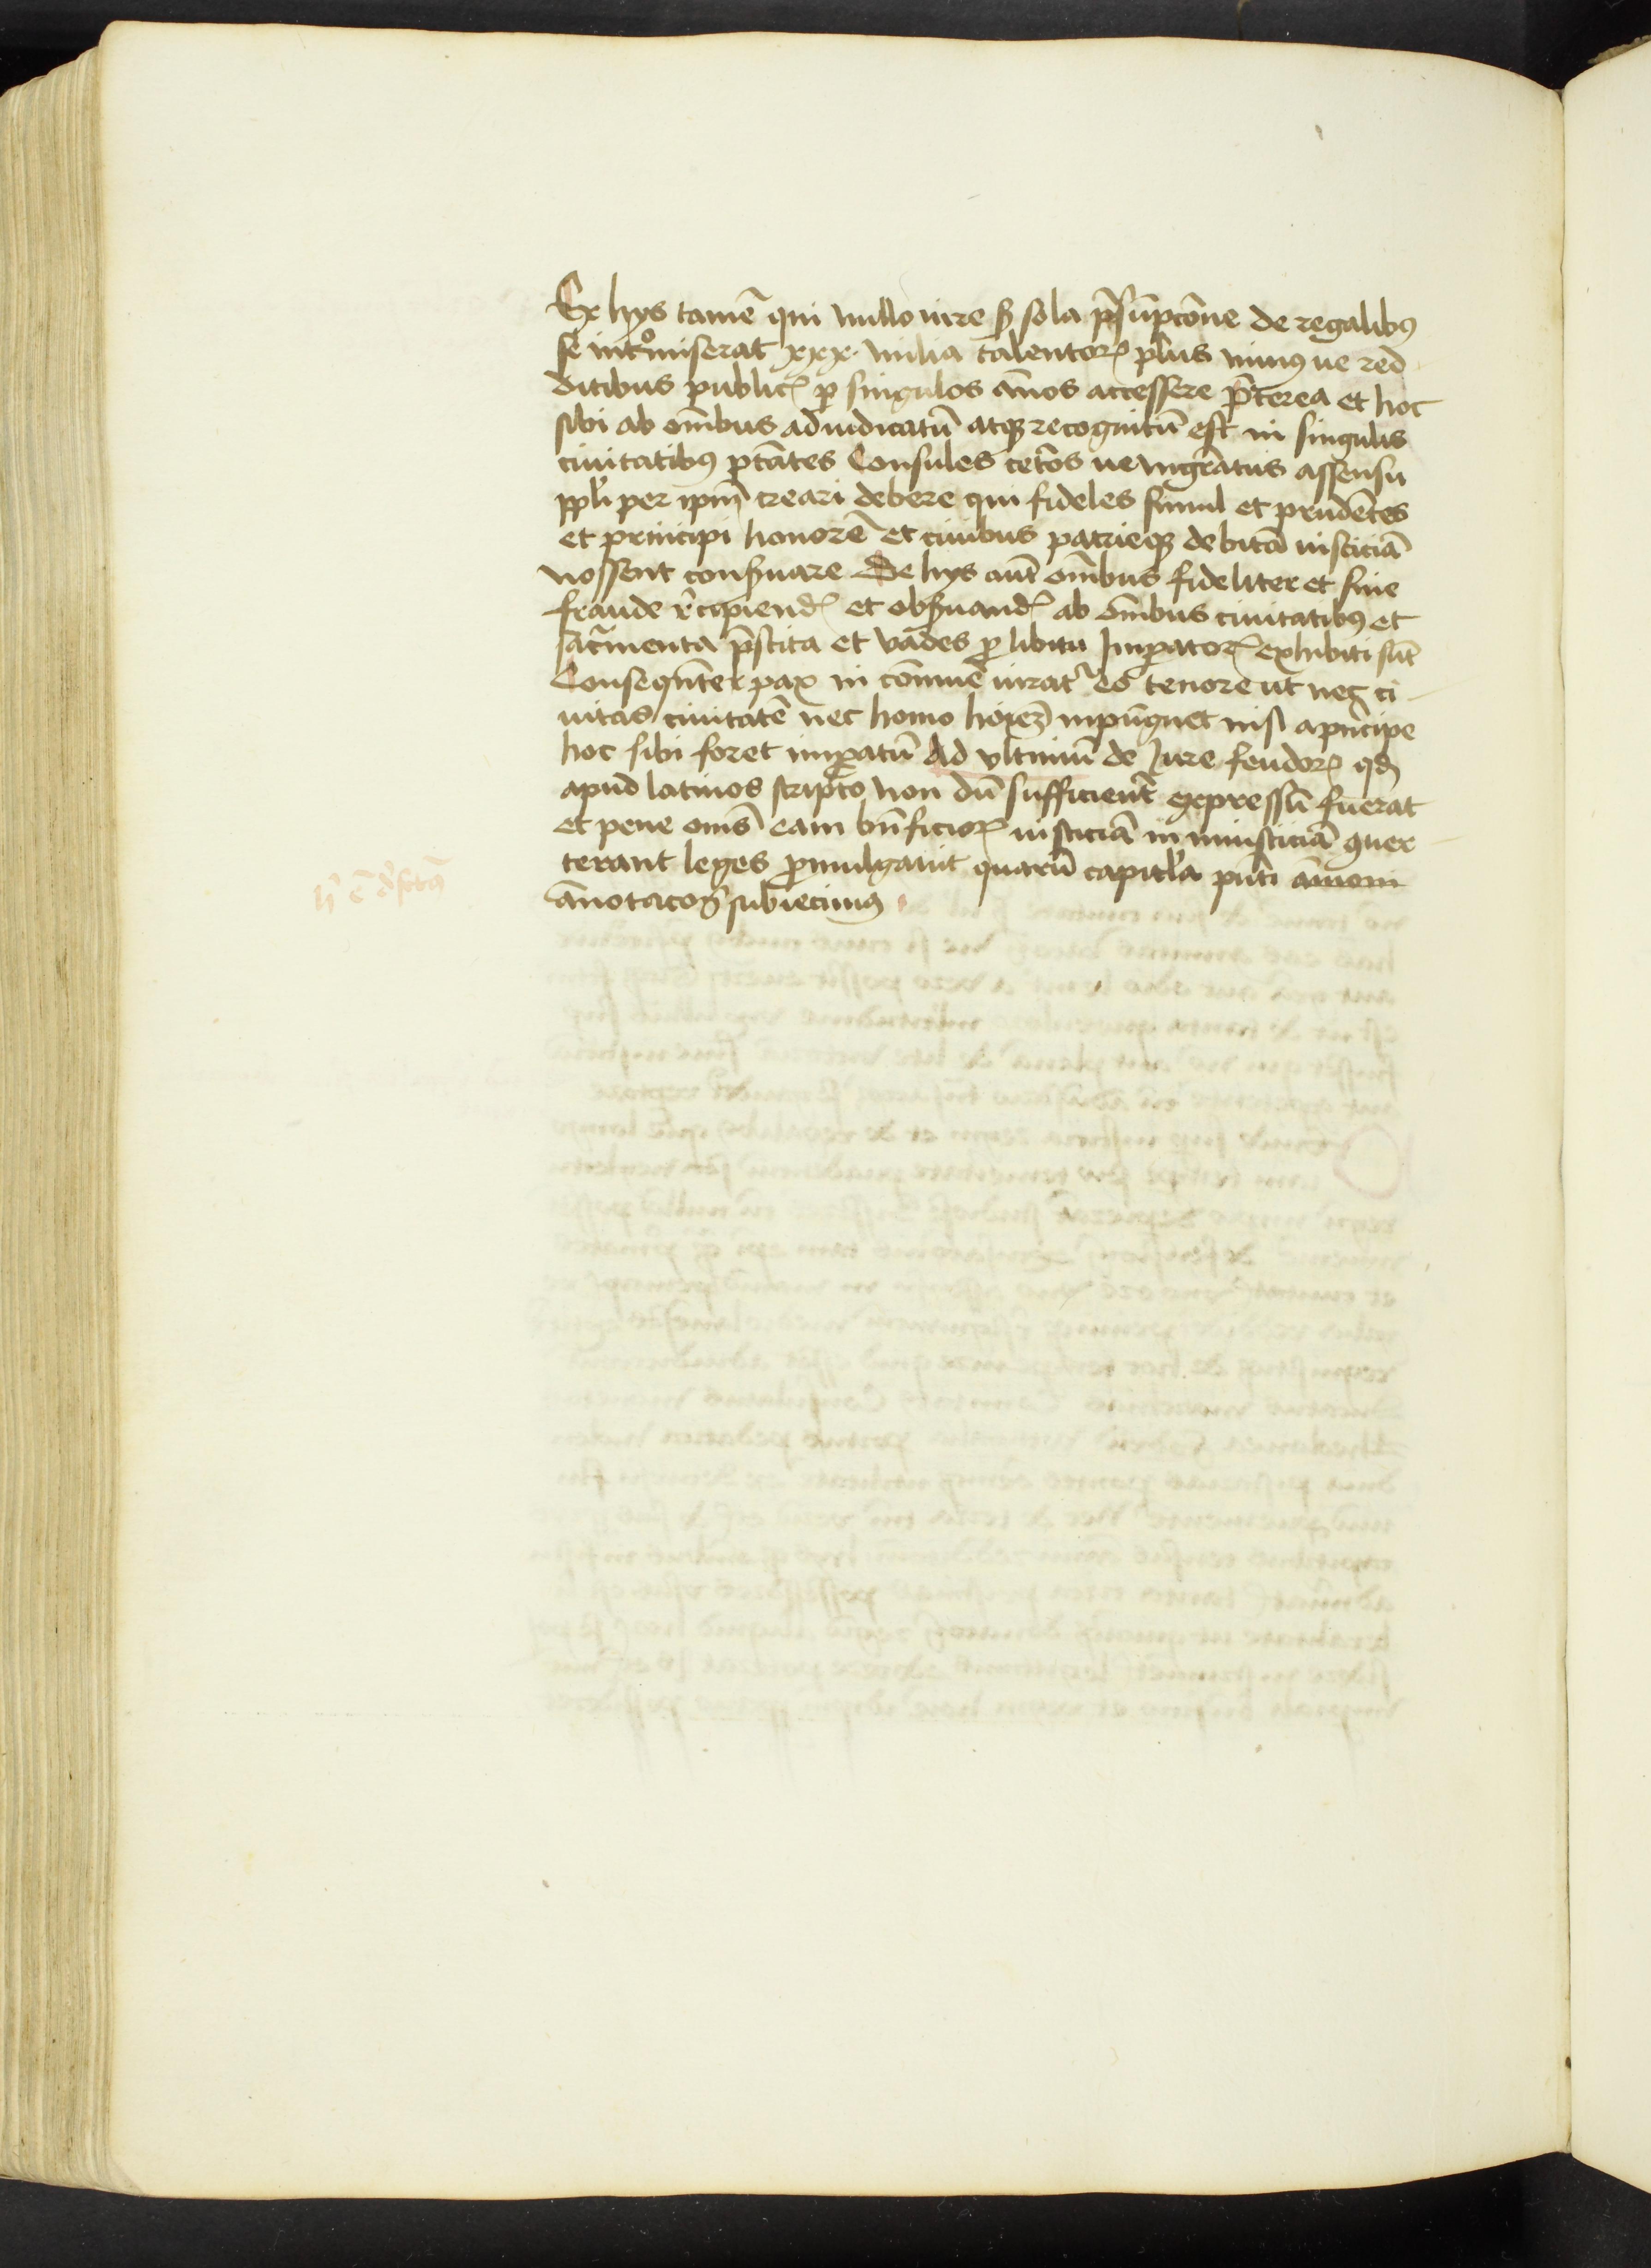 Ex hys tamē qui nullo iure sꝫ sola p̄sūpcōne de regalibꝰ
se intᵒmiserāt xxx. milia talentoꝝ plus minꝰue red
ditibus public̄ ꝑ singulos an̄os accessere p̄terea et hoc
sibi ab om̄ibus adiudicatū atqꝫ recognitū est in singulis
ciuitatibꝰ ptātes Consules cet̄os ue mgr̄atus assensu
ppl̓i per ip̄m creari debere qui fideles simul et prudētes
et principi honorē et ciuibus patrieqꝫ debitā iusticiā
nossent conẜuare De hys aut̄ om̄ibus fideliter et sine
fraude rcipiend̄ et obẜuand̄ ab om̄ibus ciuitatibꝰ et
sac̄menta p̄stita et vādes ꝓ libitu Imꝑatoꝝ exhibiti sūt
Conseqūter pax in cōmune iurat᷑ eo tenore ut neqꝫ ci
uitas ciuitatē nec homo hoı̄eꝫ inpūgnet nisi a pncipe
hoc sibi foret imꝑatū Ad vltimū de Jure feudoꝝ qd̓
apud latinos scripto non dū sufficient̄ expressū fuerat
et pene om̄s eam bn̄ficioꝝ iusticiā in iniusticiā ꝯuer
terant leges ꝓmulgauit quarū capitl̓a pn̄ti an̄om
an̄otacōi subiecimꝰ